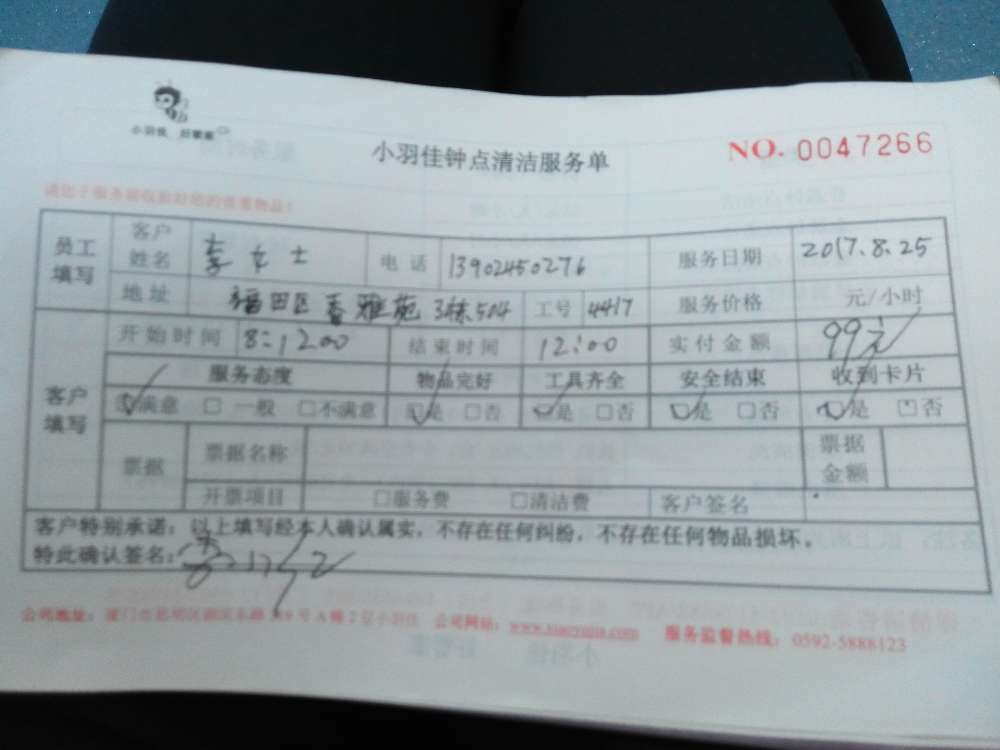 小羽佳 好管家
小羽佳钟点清洁服务单
NO. 0047266
请您于服务前收拾好您的贵重物品!
员工填写 客户姓名 李女士 电话 13902450276 服务日期 2017.8.25
地址 福田区香雅苑3栋504 工号 4417 服务价格 元/小时
客户填写 开始时间 8:1200 结束时间 12:00 实付金额 99元
服务态度 物品完好 工具齐全 安全结束 收到卡片
☑满意 □一般 □不满意 ☑是 □否 ☑是 □否 ☑是 □否 ☑是 □否
票据 票据名称 票据金额
开票项目 □服务费 □清洁费 客户签名
客户特别承诺:以上填写经本人确认属实,不存在任何纠纷,不存在任何物品损坏。
特此确认签名:
公司地址:厦门市思明区湖滨东路 号A幢2层小羽佳 公司网站: 服务监督热线:0592-5888123